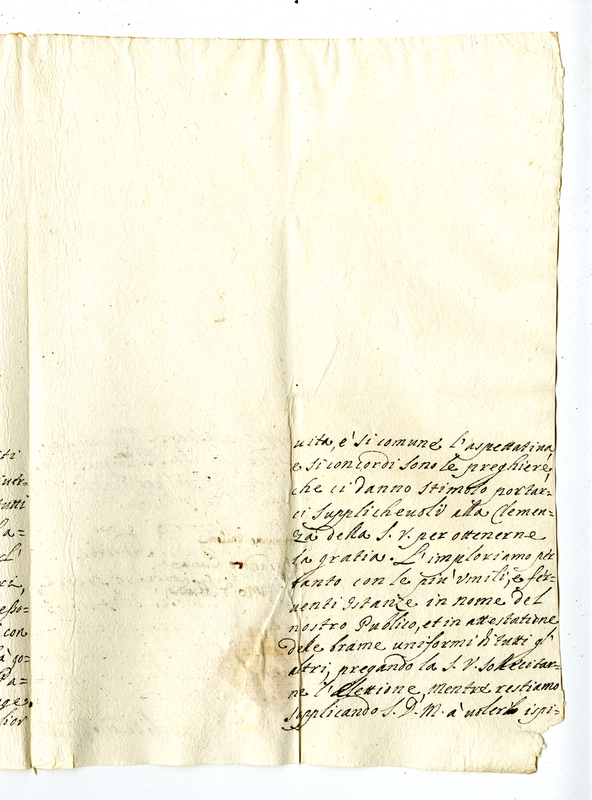 ti
uer-
tutti
la-
cl'
ri,
esso-
con
à go-
Pa-
ege.
lior
uita, e' si comune l'aspettatiua,
e si concordi sono le preghiere,
che ci danno stimolo portar-
ci supplicheuoli alla Clemen-
za della S. V. per ottenerne
la gratia. L'imploriamo per
tanto con le più vmili, e fer-
uenti istanze in nome del
nostro Publico, et in attestatione
delle brame uniformi di tutti gl'
altri, pregando la S. V. sollecitar-
ne l'elettione, mentre restiamo
supplicando S. D. M. à uolerlo ispi-